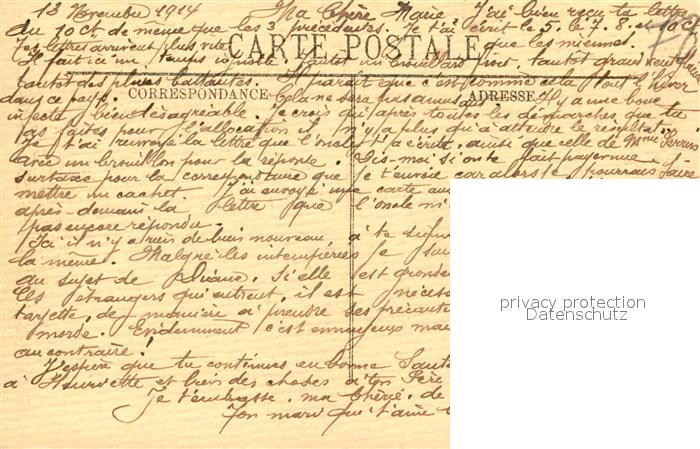 13 Novembre 1914 Ma Chère Marie J'ai bien reçu ta lettre
du 10 C. de même que les 3 précédentes. Je t'ai écrit le 5. le 7. 8. et 10 C.
Tes lettres arrivent plus vite que les miennes.
CARTE POSTALE
Il fait ici un temps tantôt un brouillard tantôt grand vent
tantôt des pluies battantes. Il paraît que c'est comme cela tout l'hiver
dans ce pays. Cela ne sera pas amusant Il y a une boue
CORRESPONDANCE ADRESSE
infecte bien désagréable. Je crois qu'après toutes les démarches que tu
as faites pour l'allocation il n'y a plus qu'à attendre le résultat.
Je t'ai renvoyé la lettre que l'oncle t'a écrite, ainsi que celle de Mme
avec un brouillon pour la réponse. Dis-moi si on te fait payer une
surtaxe pour la correspondance que je t'envoie car alors je pourrais faire
mettre un cachet. J'ai envoyé une carte
après-demain la lettre que l'oncle m'
pas encore répondu.
Ici il n'y a rien de bien nouveau, à te
la même. Malgré les intempéries je
au sujet de Diane. Si elle est
les étrangers qui entrent, il est
targette, de manière à prendre ses
morde. Evidemment c'est ennuyeux
au contraire!
J'espère que tu continues en bonne
à Henriette et bien des choses à ton Père
Je t'embrasse, ma Chérie, de
Ton mari qui t'aime
privacy protection
Datenschutz